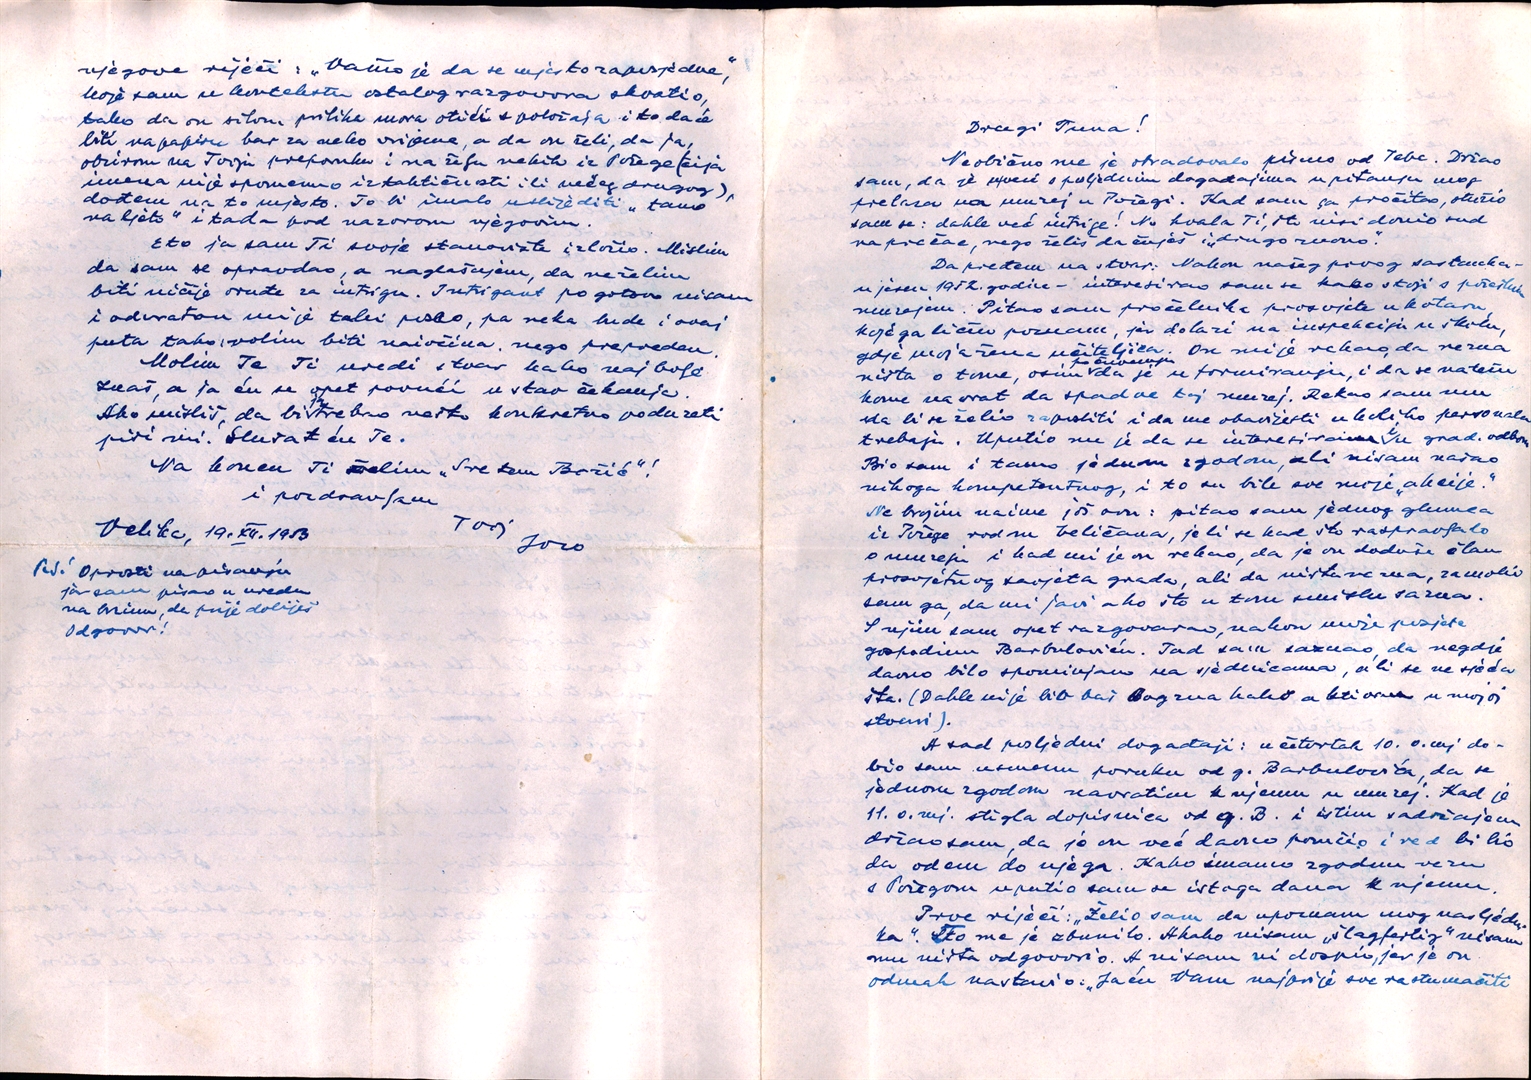 njegove riječi: „Važno je da se mjesto zaposjedne“,
koje sam u kontekstu ostalog razgovora shvatio,
tako da on silom prilika mora otići s položaja i to da će
biti na papiru bar za neko vrijeme, a da on želi, da ja,
obzirom na Tvoju preporuku i na želju nekih iz Požege (čija
imena nije spomenuo iz taktičnosti ili nečeg drugog),
dođem na to mjesto. To bi imalo uslijediti „tamo
na ljeto“ i tada pod nazorom njegovim.
Eto ja sam Ti svoje stanovište izložio. Mislim
da sam se opravdao, a naglašujem, da neželim
biti ničije oruđe za intrigu. Intrigant pogotovo nisam
i odvratan mi je taki posao, pa neka bude i ovaj
puta tako: volim biti naivčina nego prepreden.
Molim Te Ti uredi stvar kako najbolje
znaš, a ja ću se opet povući u stav čekanja.
Ako misliš, da bi ja trebao nešto konkretno poduzeti
piši mi. Slušat ću Te.
Na koncu Ti želim „Sretan Božić“!
i pozdravljam
Tvoj
Joso
Velika, 19. XII. 1953
P.S.! Oprosti na pisanju
jer sam pisao u uredu
na brzinu, da prije dobiješ
odgovor!
Dragi Tuna!
Neobično me je obradovalo pismo od Tebe. Držao
sam, da je u vezi s posljednim događajima u pitanju mog
prelaza na muzej u Požegi. Kad sam ga pročitao, otužio
sam se: dakle već intrige! No hvala Ti, što nisi donio sud
na prečac, nego želiš da čuješ i „drugo zvono“.
Da pređem na stvar: Nakon našeg prvog sastanka –
u jesen 1952. godine – interesirao sam se kako stoji s požeškim
muzejom. Pitao sam pročelnika prosvjete u kotaru,
kojega lično poznam, jer dolazi na inspekciju u školu,
gdje moja žena učiteljica. On mi je rekao, da nezna
ništa o tome, osim da je u formiranju, i da se nazna
kome na vrat da spadne taj muzej. Rekao sam mu
da bi se želio zaposliti i da me obavijesti ukoliko personala
trebaju. Uputio me je da se interesiram u grad. odboru
Bio sam i tamo jednom zgodom, ali nisam našao
nikoga kompetentnog, i to su bile sve moje „akcije“.
Ne brojim naime još ovu: pitao sam jednog glumca
iz Požege rodom Veličana, je li se kad što raspravljalo
o muzeju i kad mi je on rekao, da je on doduše član
prosvjetnog savjeta grada, ali da ništa ne zna, zamolio
sam ga, da mi javi ako što u tom smislu sazna.
S njim sam opet razgovarao, nakon moje posjete
gospodinu Barbuloviću. Tad sam saznao, da negdje
davno bilo spominjano na sjednicama, ali se ne sjeća
šta. (Dakle nije bio baš Bog zna kako aktivan u mojoj
stvari).
A sad posljedni događaji: u četvrtak 10. o. mj do-
bio sam usmenu poruku od g. Barbulovića, da se
jednom zgodom navratim k njemu u muzej. Kad je
11. o. mj. stigla dopisnica od g. B. i istim sadržajem
držao sam, da je on već davno poručio i red bi bio
da odem do njega. Kako imamo zgodnu vezu
s Požegom uputio sam se istoga dana k njemu.
Prve riječi: „Želio sam da upoznam mog nasljedni-
ka“. Što me je zbunilo. A kako nisam „šlagfertig“ nisam
mu ništa odgovorio. A nisam ni dospio, jer je on
odmah nastavio: „Ja ću Vam najprije sve rastumačiti